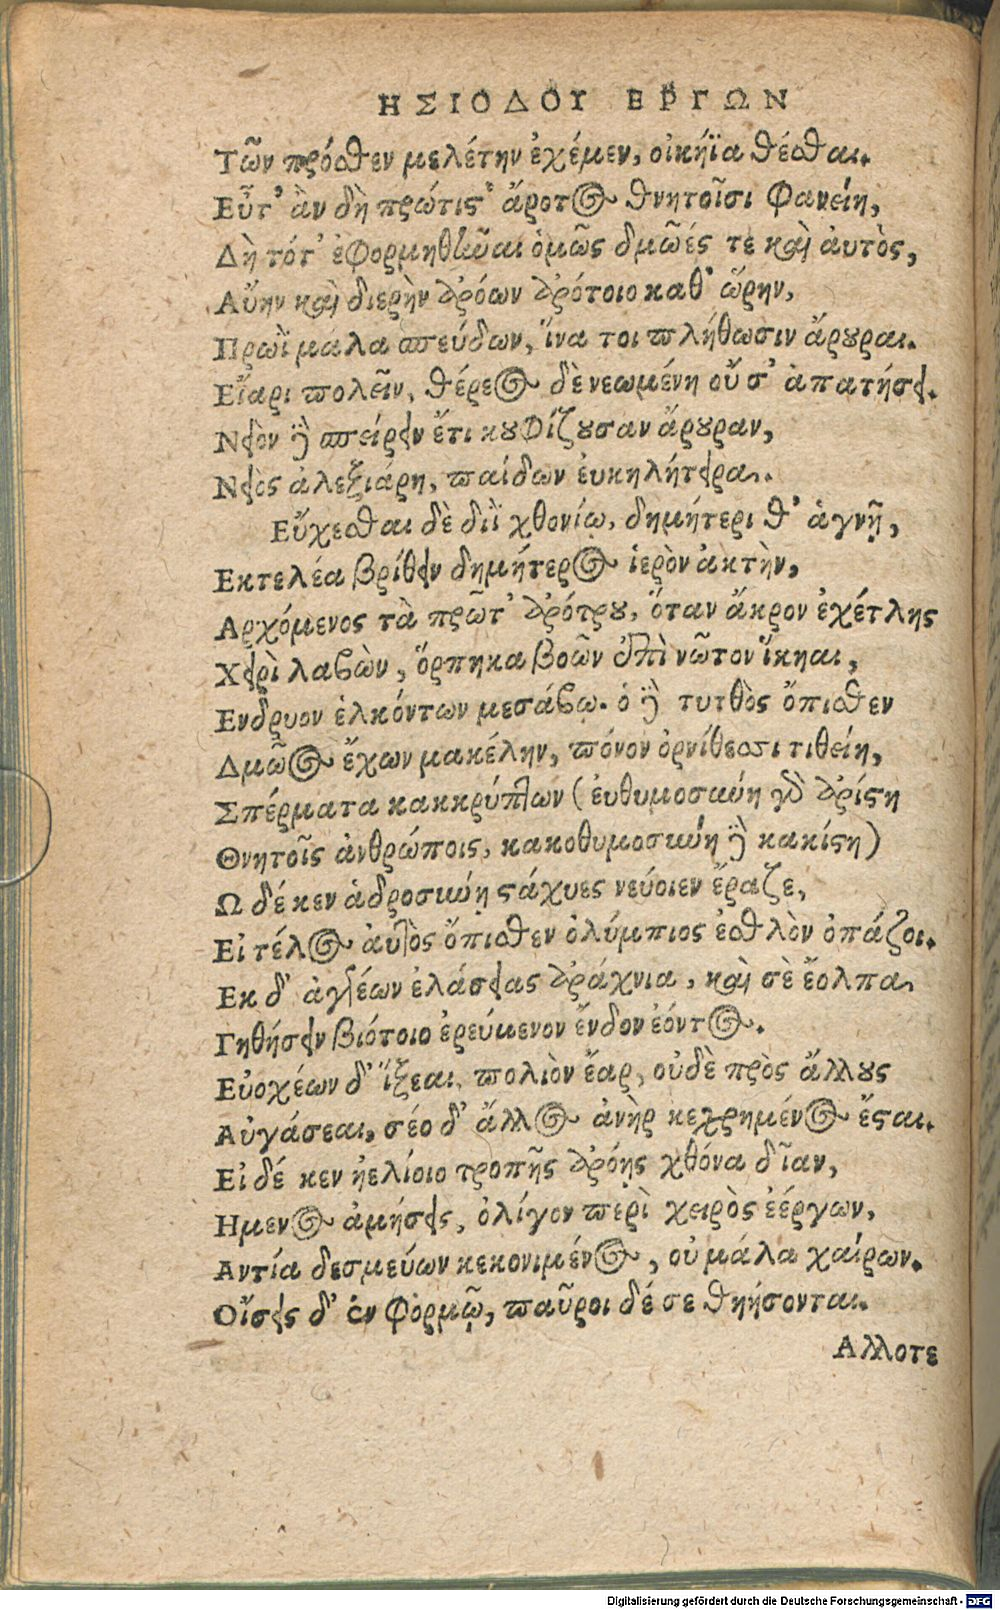 ΗΣΙΟΔΟΥ ΕΡΓΩΝ
Τῶν πρόσθεν μελέτην ἐχέμεν, οἰκήϊα θέσθαι.
Εὖτ' ἂν δὴ πρώτιστ' ἄροτος θνητοῖσι φανείη,
Δὴ τότ' ἐφορμηθῆναι ὁμῶς δμῶές τε καὶ ἀυτὸς,
Αὔην καὶ διερὴν ἀρόων ἀρότοιο καθ' ὥρην,
Πρωῒ μάλα σπεύδων, ἵνα τοι πλήθωσιν ἄρουραι.
Εἴαρι πολεῖν, θέρεος δὲ νεωμένη οὔ σ' ἀπατήσει.
Νειὸν δὲ σπείρειν ἔτι κουφίζουσαν ἄρουραν,
Νειὸς ἀλεξιάρη, παίδων ἐυκηλήτειρα.
Εὔχεσθαι δὲ διῒ χθονίῳ, δημήτερι θ' ἁγνῇ,
Εκτελέα βρίθειν δημήτερος ἱερὸν ἀκτὴν,
Αρχόμενος τὰ πρῶτ' ἀρότρου, ὅταν ἄκρον ἐχέτλης
Χειρὶ λαβὼν, ὅρπηκα βοῶν ἐπὶ νῶτον ἵκηαι,
Ενδρυον ἑλκόντων μεσάβῳ. ὁ δὲ τυτθὸς ὄπισθεν
Δμῶος ἔχων μακέλην, πόνον ὀρνίθεσσι τιθείη,
Σπέρματα κακκρύπτων (ἐυθυμοσύνη γὰρ ἀρίστη
Θνητοῖς ἀνθρώποις, κακοθυμοσύνη δὲ κακίστη)
Ω δέ κεν ἁδροσύνῃ στάχυες νεύοιεν ἔραζε,
Εἰ τέλος ἀυτὸς ὄπισθεν ὀλύμπιος ἐσθλὸν ὀπάζοι.
Εκ δ' ἀγγέων ἐλάσειας ἀράχνια, καὶ σὲ ἔολπα
Γηθήσειν βιότοιο ἐρεύμενον ἔνδον ἐόντος.
Εὐοχέων δ' ἵξεαι πολιὸν ἔαρ, οὐδὲ πρὸς ἄλλους
Αὐγάσεαι, σέο δ' ἄλλος ἀνὴρ κεχρημένος ἔσται.
Εἰ δέ κεν ἠελίοιο τροπῆς ἀρόῃς χθόνα δῖαν,
Ημενος ἀμήσεις, ὀλίγον περὶ χειρὸς ἐέργων,
Αντία δεσμεύων κεκονιμένος, οὐ μάλα χαίρων.
Οἴσεις δ' ἐν φορμῷ, παῦροι δέ σε θηήσονται.
Αλλοτε
Digitalisierung gefördert durch die Deutsche Forschungsgemeinschaft - DFG